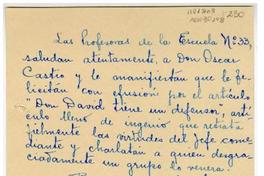 Las Profesoras de la Escuela N.º 33,
saludan atentamente, a Don Oscar
Castro y le manifiestan que le fe-
licitan con efusión por el artículo
"Don David tiene un defensor", artí-
culo lleno de ingenio que retrata
fielmente las virtudes del Jefe come
diante y charlatán a quien desgra-
ciadamente un grupo lo venera.